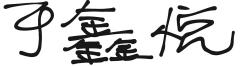 于鑫悦